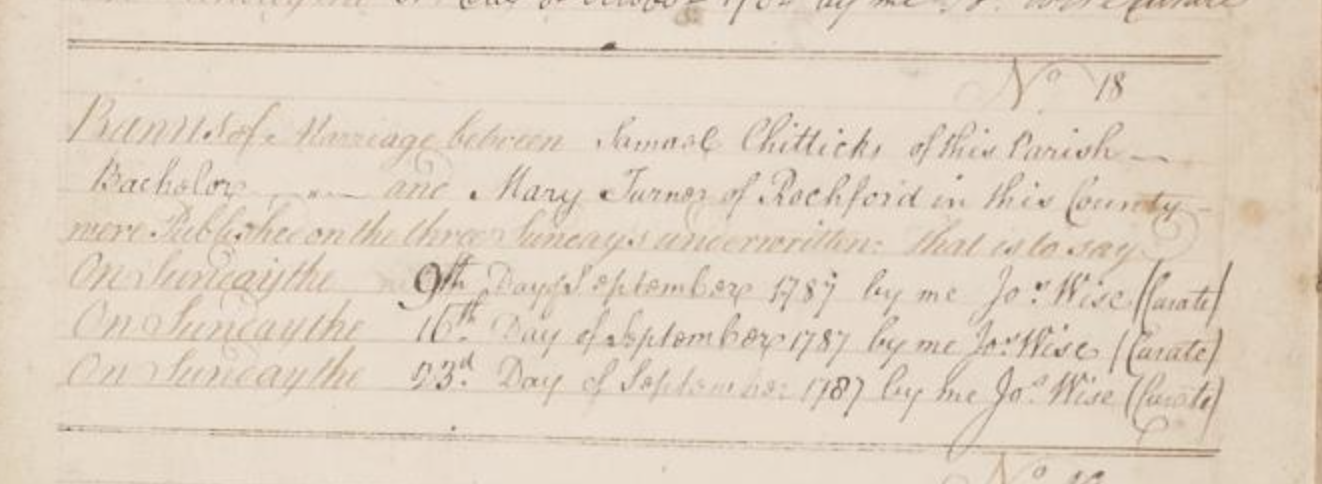 by me
No 18
Banns of Marriage between Samuel Chittick, of this Parish
Bachelor and Mary Turner of Rochford in this County
were Published on the three Sundays underwritten: that is to say
On Sunday the 9th Day of September 1787 by me Jos. Wise (Curate)
On Sunday the 16th Day of September 1787 by me Jos. Wise (Curate)
On Sunday the 23d. Day of September 1787 by me Jos. Wise (Curate)
No